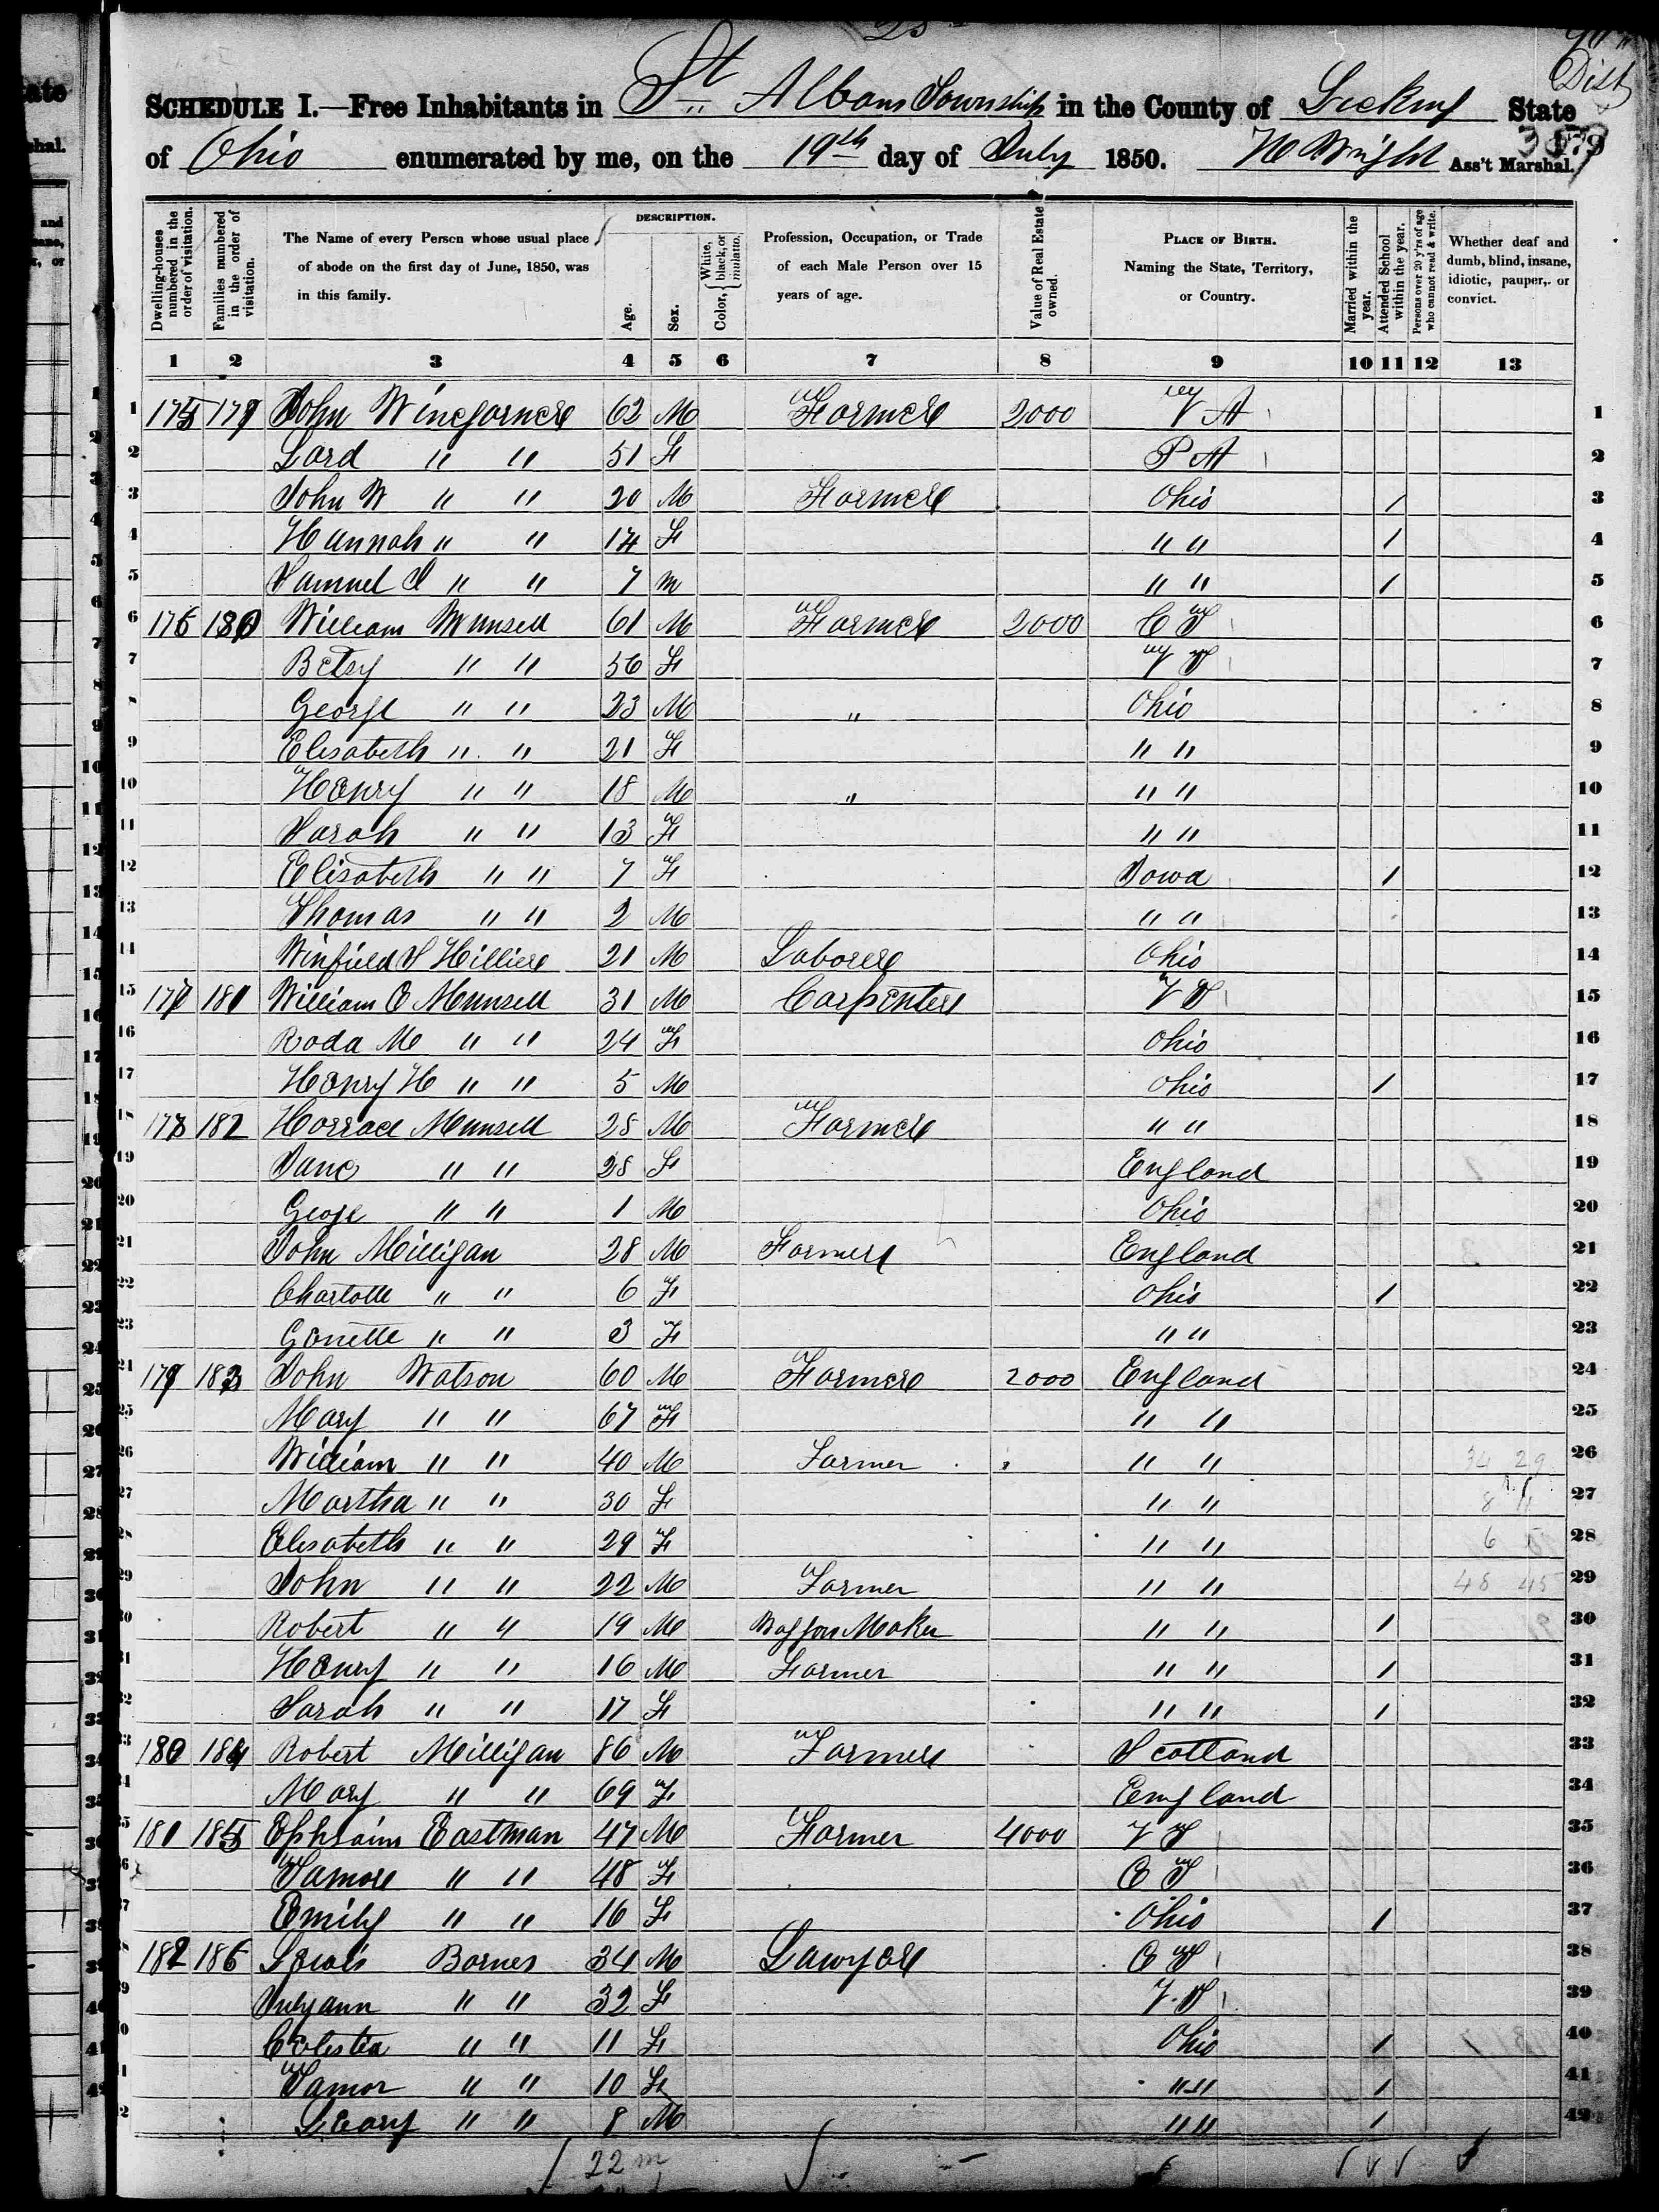 Dist
SCHEDULE I.—Free Inhabitants in St Albans Township in the County of Licking State
of Ohio enumerated by me, on the 19th day of July 1850. Wright Ass't Marshal.
DESCRIPTION.
Dwelling-houses numbered in the order of visitation.
Families numbered in the order of visitation.
The Name of every Person whose usual place of abode on the first day of June, 1850, was in this family.
Age.
Sex.
Color, White, black, or mulatto.
Profession, Occupation, or Trade of each Male Person over 15 years of age.
Value of Real Estate owned.
PLACE OF BIRTH. Naming the State, Territory, or Country.
Married within the year.
Attended School within the year.
Persons over 20 y'rs of age who cannot read & write.
Whether deaf and dumb, blind, insane, idiotic, pauper, or convict.
1 2 3 4 5 6 7 8 9 10 11 12 13
1 175 179 John Winegarner 62 M Farmer 2000 VA 1
2 " " 51 F PA 2
3 John W " " 20 M Farmer Ohio / 3
4 Hannah " " 14 F " " / 4
5 Samuel " " 7 M " " / 5
6 176 180 William Munsell 61 M Farmer 2000 CT 6
7 Betsy " " 56 F VT 7
8 George " " 23 M " Ohio 8
9 Elisabeth " " 21 F " " 9
10 Henry " " 18 M " " " 10
11 Sarah " " 13 F " " 11
12 Elizabeth " " 7 F Iowa / 12
13 Thomas " " 2 M " " 13
14 Winfield S Hillier 21 M Laborer Ohio 14
15 177 181 William C Munsell 31 M Carpenter VT 15
16 Roda M " " 24 F Ohio 16
17 Henry H " " 5 M Ohio / 17
18 178 182 Horrace Munsell 28 M Farmer " " 18
19 Jane " " 28 F England 19
20 Geoge " " 1 M Ohio 20
21 John Milligan 28 M Farmer England 21
22 Charlotte " " 6 F Ohio / 22
23 Genette " " 3 F " " 23
24 179 183 John Watson 60 M Farmer 2000 England 24
25 Mary " " 67 F " " 25
26 William " " 40 M Farmer " " 26
27 Martha " " 30 F " " 27
28 Elisabeth " " 29 F " " 28
29 John " " 22 M Farmer " " 29
30 Robert " " 19 M Waggon Maker " " / 30
31 Henry " " 16 M Farmer " " / 31
32 Sarah " " 17 F " " / 32
33 180 184 Robert Milligan 86 M Farmer Scotland 33
34 Mary " " 69 F England 34
35 181 185 Ephraim Eastman 47 M Farmer 4000 VT 35
36 " " 48 F CT 36
37 Emily " " 16 F Ohio / 37
38 182 186 Lewis Barnes 34 M Lawyer CT 38
39 Julyann " " 32 F VT 39
40 Celestia " " 11 F Ohio / 40
41 Tamor " " 10 F " " / 41
42 Leary " " 8 M " " / 42
22 m